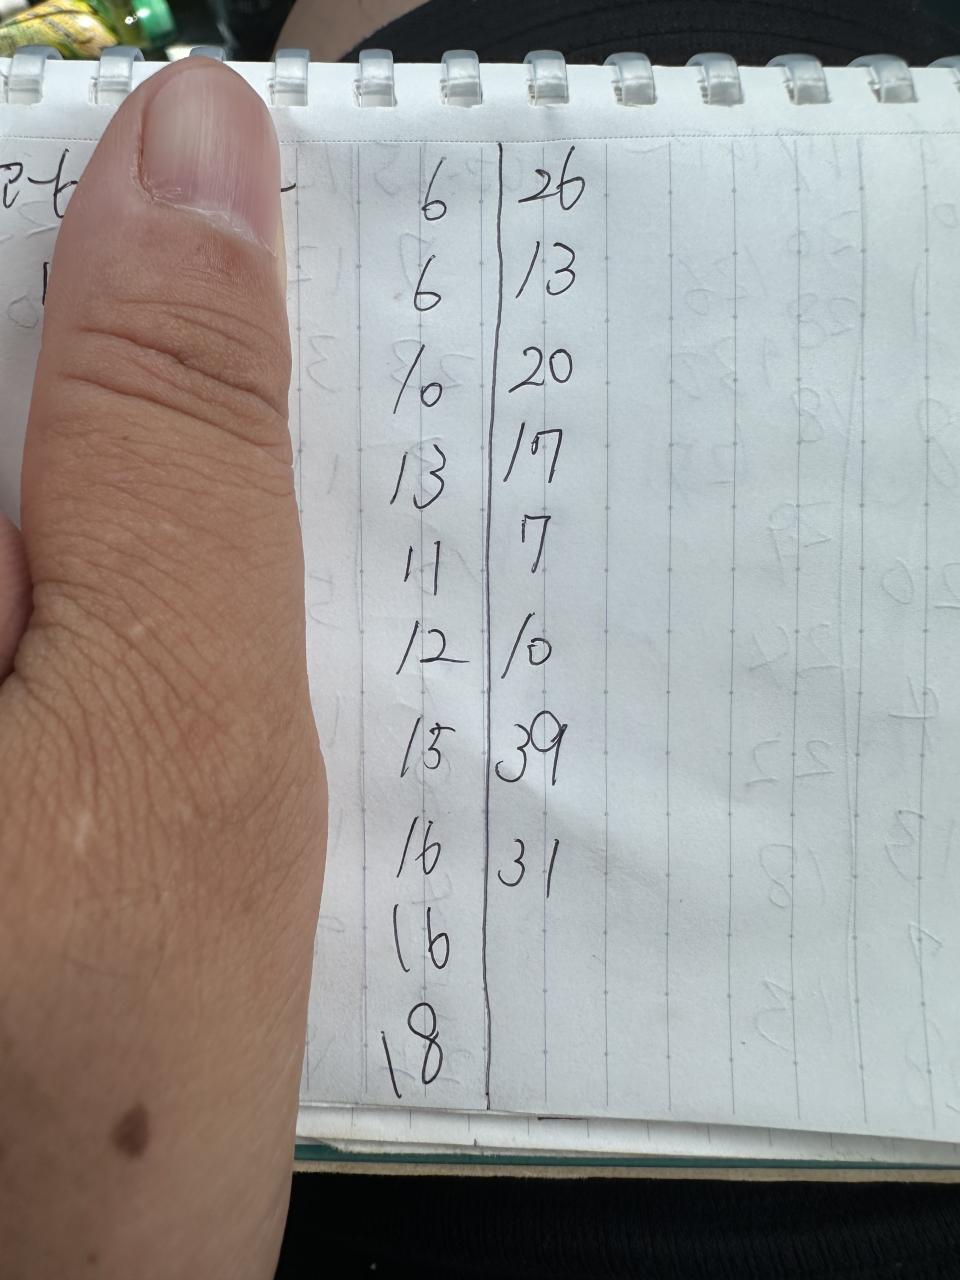 6 26
6 13
10 20
13 17
11 7
12 10
15 39
16 31
16
18